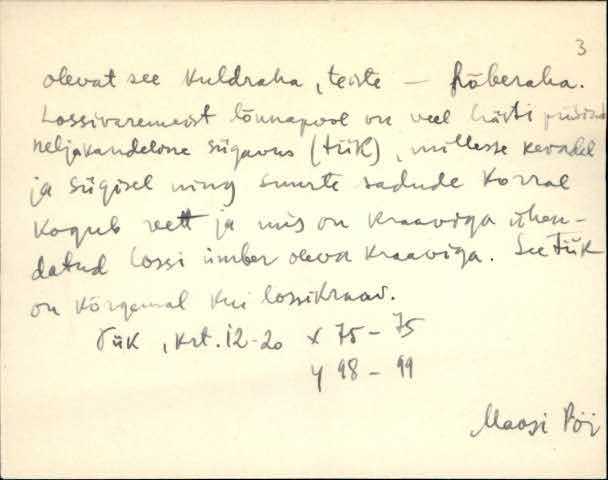 3
olevat see kuldraha, teiste — hõberaha.
Lossivaremeist lõunapool on veel hästi
neljakandeline sügavus (tiik), millesse kevadel
ja sügisel ning suurte sadude korral
kogub vett ja mis on kraaviga ühen-
datud lossi ümber oleva kraaviga. See tiik
on kõrgemal kui lossikraav.
Tiik, krt. 12-20 x 75 - 75
y 98 - 99